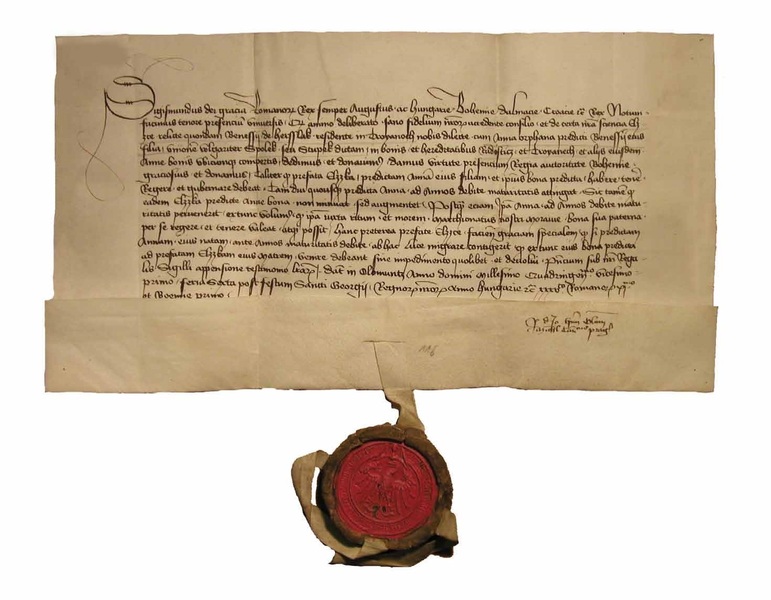 Sigismundus dei gracia Romanorum Rex semper Augustus ac Hungarie Bohemie Dalmacie Croacie etc Rex Notum
facimus tenore presencium universis Et animo deliberato sano fidelium nostrorum accedente consilio et de certa nostra sciencia
relicte quondam Benessij de residente in nobis dilecte cum Anna orphana predicti Benessij eius
filia unionem vulgariter Spolek seu Stupek dictam in bonis et hereditatibus et et alijs eiusdem
Anne bonis ubicunque compertis dedimus et donavimus Damus virtute presencium Regia auctoritate Bohemie
graciosius et donamus Taliter quod prefata predictam Annam eius filiam et ipsius bona predicta habere tenere
Regere et gubernare debeat Tam diu quousque predicta Anna ad Annos debite maturitatis attingat Sic tamen quod
eadem predicte Anne bona non minuat sed augmentet Postquam eciam Ipsa Anna ad Annos debite matu
ritatis pervenerit extunc volumus quod ipsa iuxta ritum et morem Marchionatus nostri Moravie bona sua paterna
per se regere et tenere valeat atque possit Hanc preterea prefate facientes graciam specialem quod si predictam
Annam eius natam ante Annos maturitatis debite ab hac luce migrare contigerit quod extunc eius bona predicta
ad prefatam eius Matrem venire debeant sine impedimento quolibet et devolvi Presencium sub nostri Rega
lis Sigilli appensione testimonio litterarum Datum in Olomuntz Anno domini Millesimo Quadringentesimo vicesimo
primo feria Sexta post festum Sancti Georgij Regnorum nostrorum Anno Hungarie etc xxxv Romanorum xi
et Boemie primo